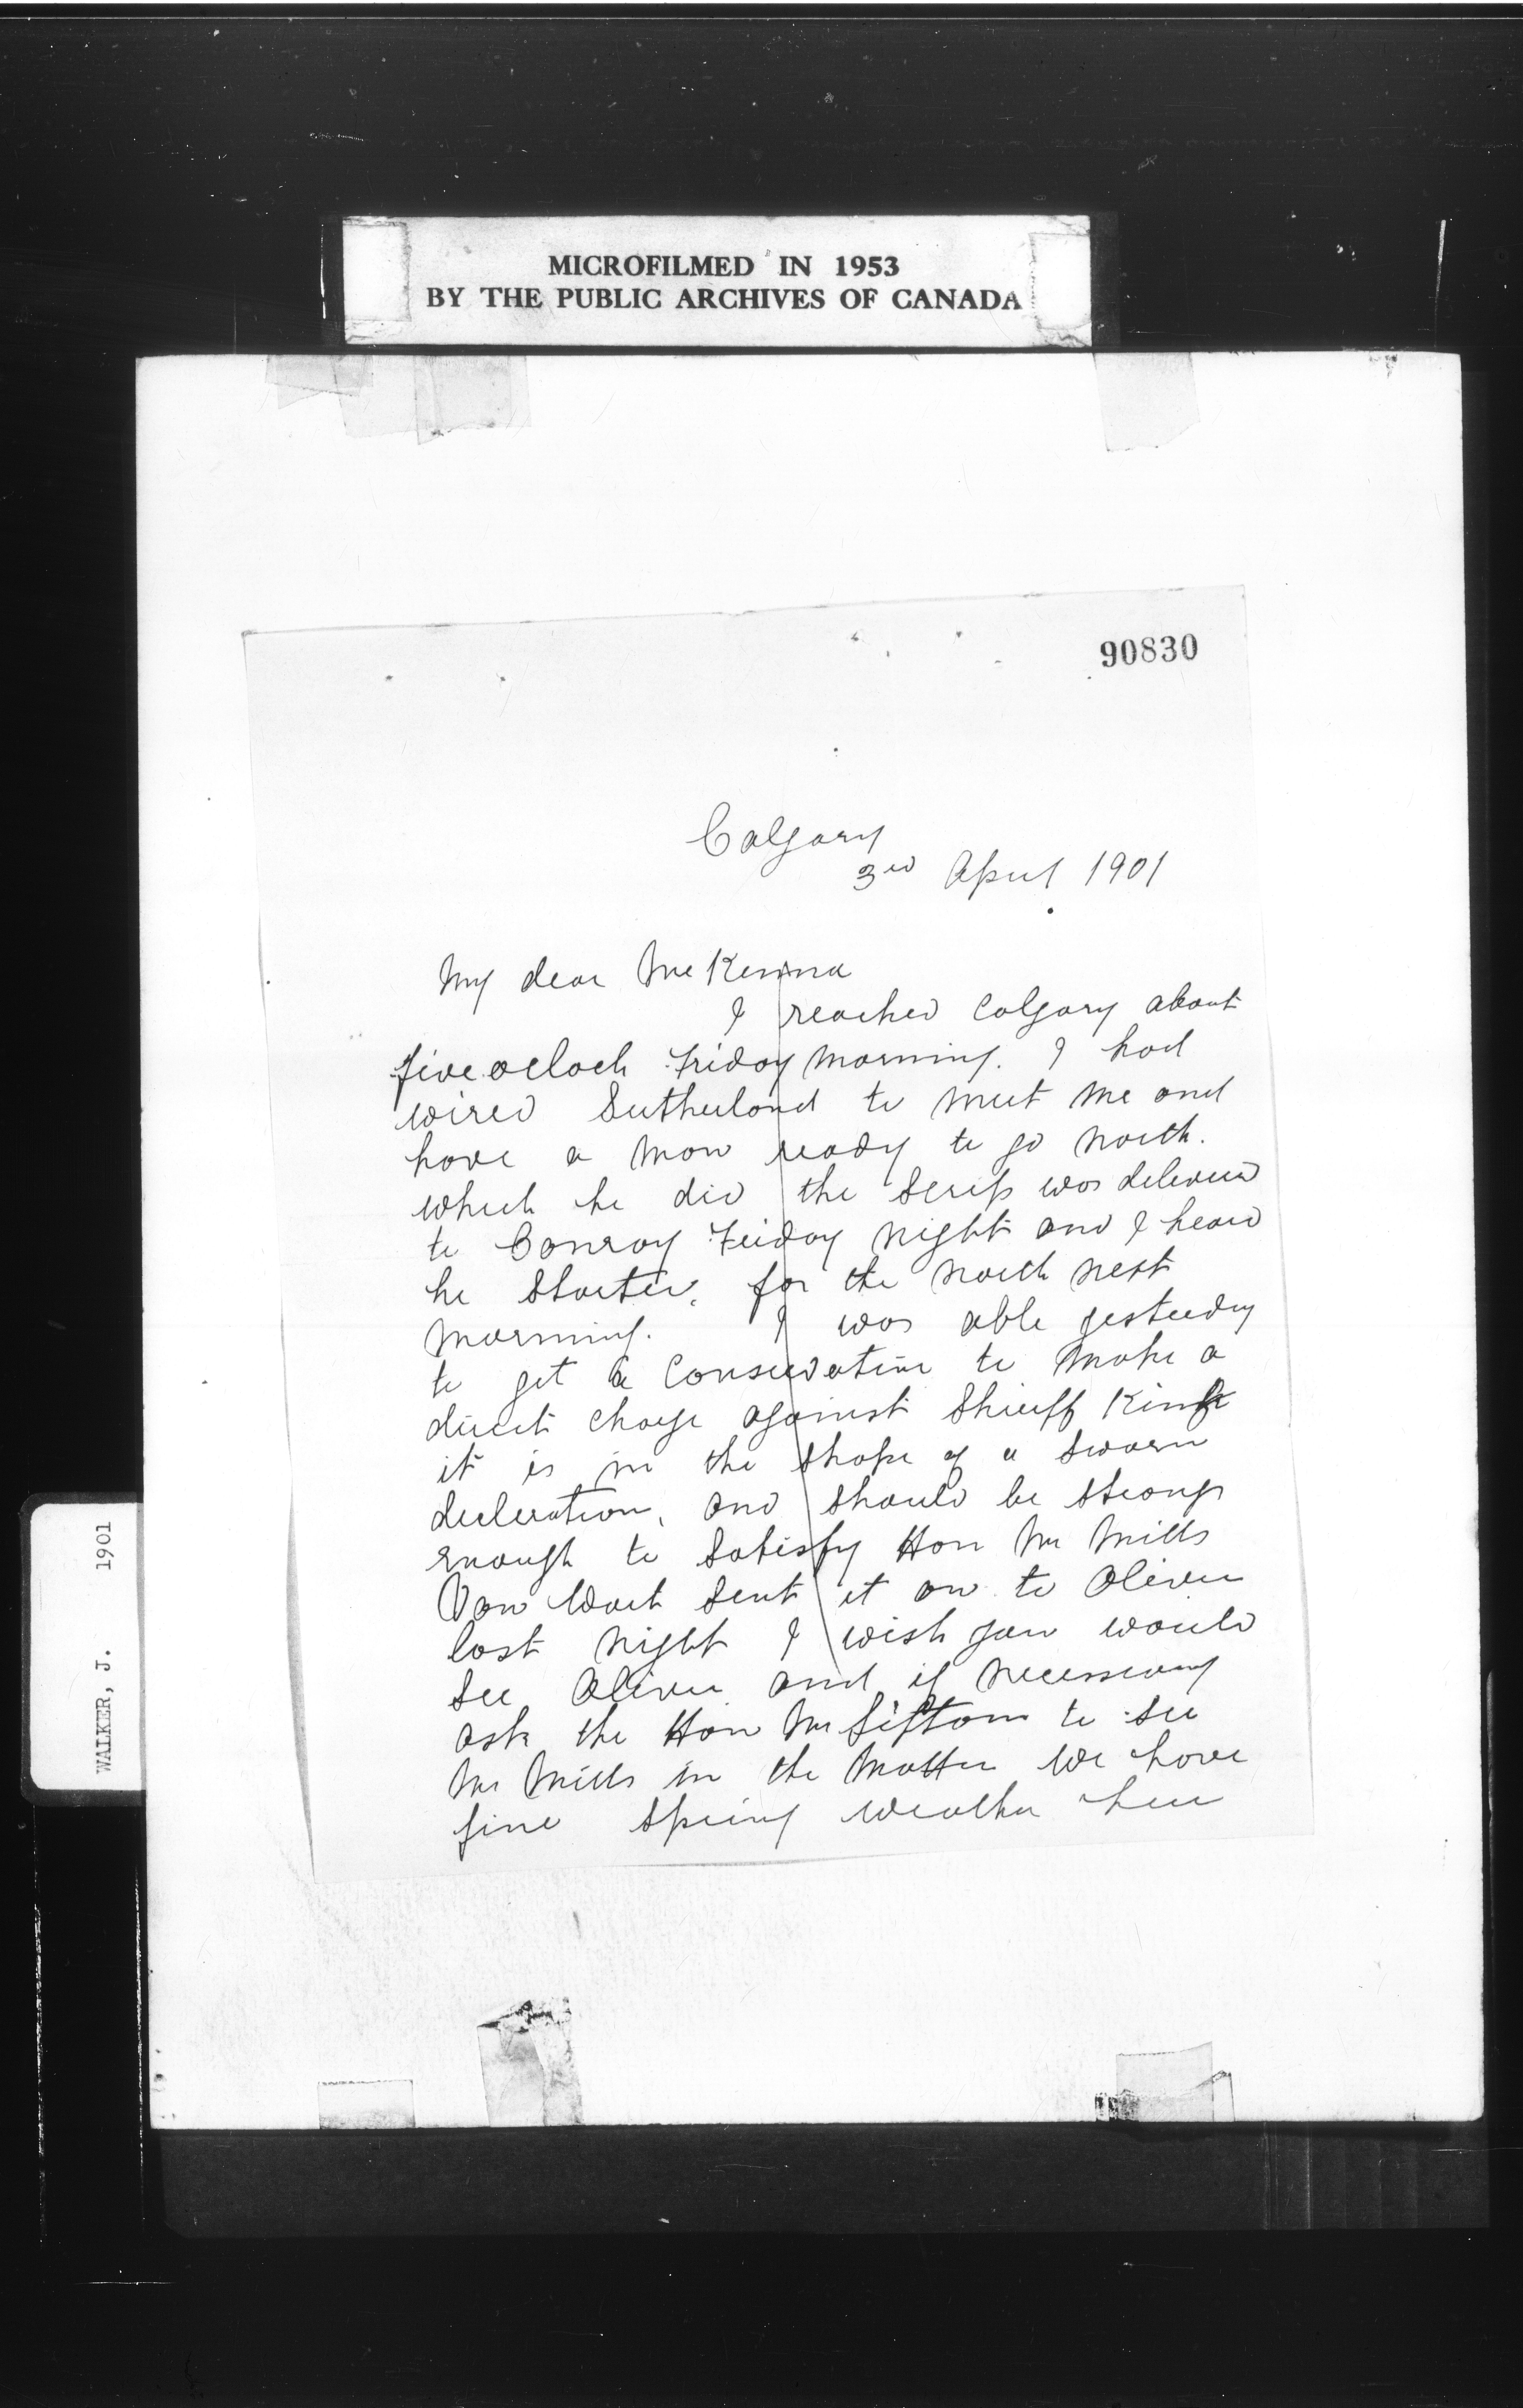 MICROFILMED IN 1953
BY THE PUBLIC ARCHIVES OF CANADA
90830
Calgary
3rd April 1901
My dear McKenna
I reached Calgary about
five oclock Friday morning. I had
wired Sutherland to meet me and
have a man ready to go north.
which he did the Scrip was delivered
to Conroy Friday night and I heard
he started for the north next
morning. I was able yesterday
to get a Conservative to make a
direct charge against Sheriff King
it is in the shape of a sworn
decleration, and should be strong
enough to satisfy Hon Mr Mills
Van Wart sent it on to Oliver
last night I wish you would
see Oliver and if necessary
ask the Hon Mr Sifton to see
Mr Mills in the matter We have
fine spring weather here
WALKER, J. 1901